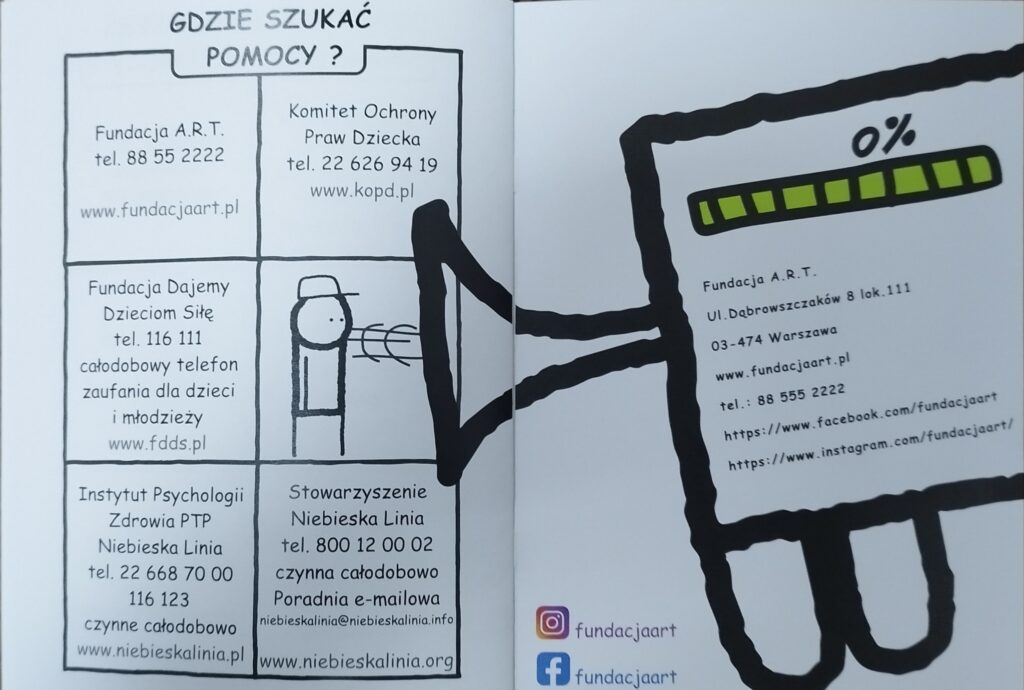 GDZIE SZUKAĆ
POMOCY ?
Fundacja A.R.T.
tel. 88 55 2222
www.fundacjaart.pl
Komitet Ochrony
Praw Dziecka
tel. 22 626 94 19
www.kopd.pl
Fundacja Dajemy
Dzieciom Siłę
tel. 116 111
całodobowy telefon
zaufania dla dzieci
i młodzieży
www.fdds.pl
Instytut Psychologii
Zdrowia PTP
Niebieska Linia
tel. 22 668 70 00
116 123
czynne całodobowo
www.niebieskalinia.pl
Stowarzyszenie
Niebieska Linia
tel. 800 12 00 02
czynna całodobowo
Poradnia e-mailowa
niebieskalinia@niebieskalinia.info
www.niebieskalinia.org
0%
Fundacja A.R.T.
Ul.Dąbrowszczaków 8 lok.111
03-474 Warszawa
www.fundacjaart.pl
tel.: 88 555 2222
https://www.facebook.com/fundacjaart
https://www.instagram.com/fundacjaart/
fundacjaart
fundacjaart